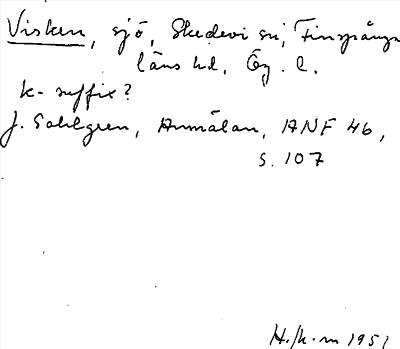 Visken, sjö, Skedevi sn, Finspånga
läns hd, Ög. l.
k-suffix?
J. Sahlgren, Anmälan, ANF 46,
s. 107
H./k-m 1951